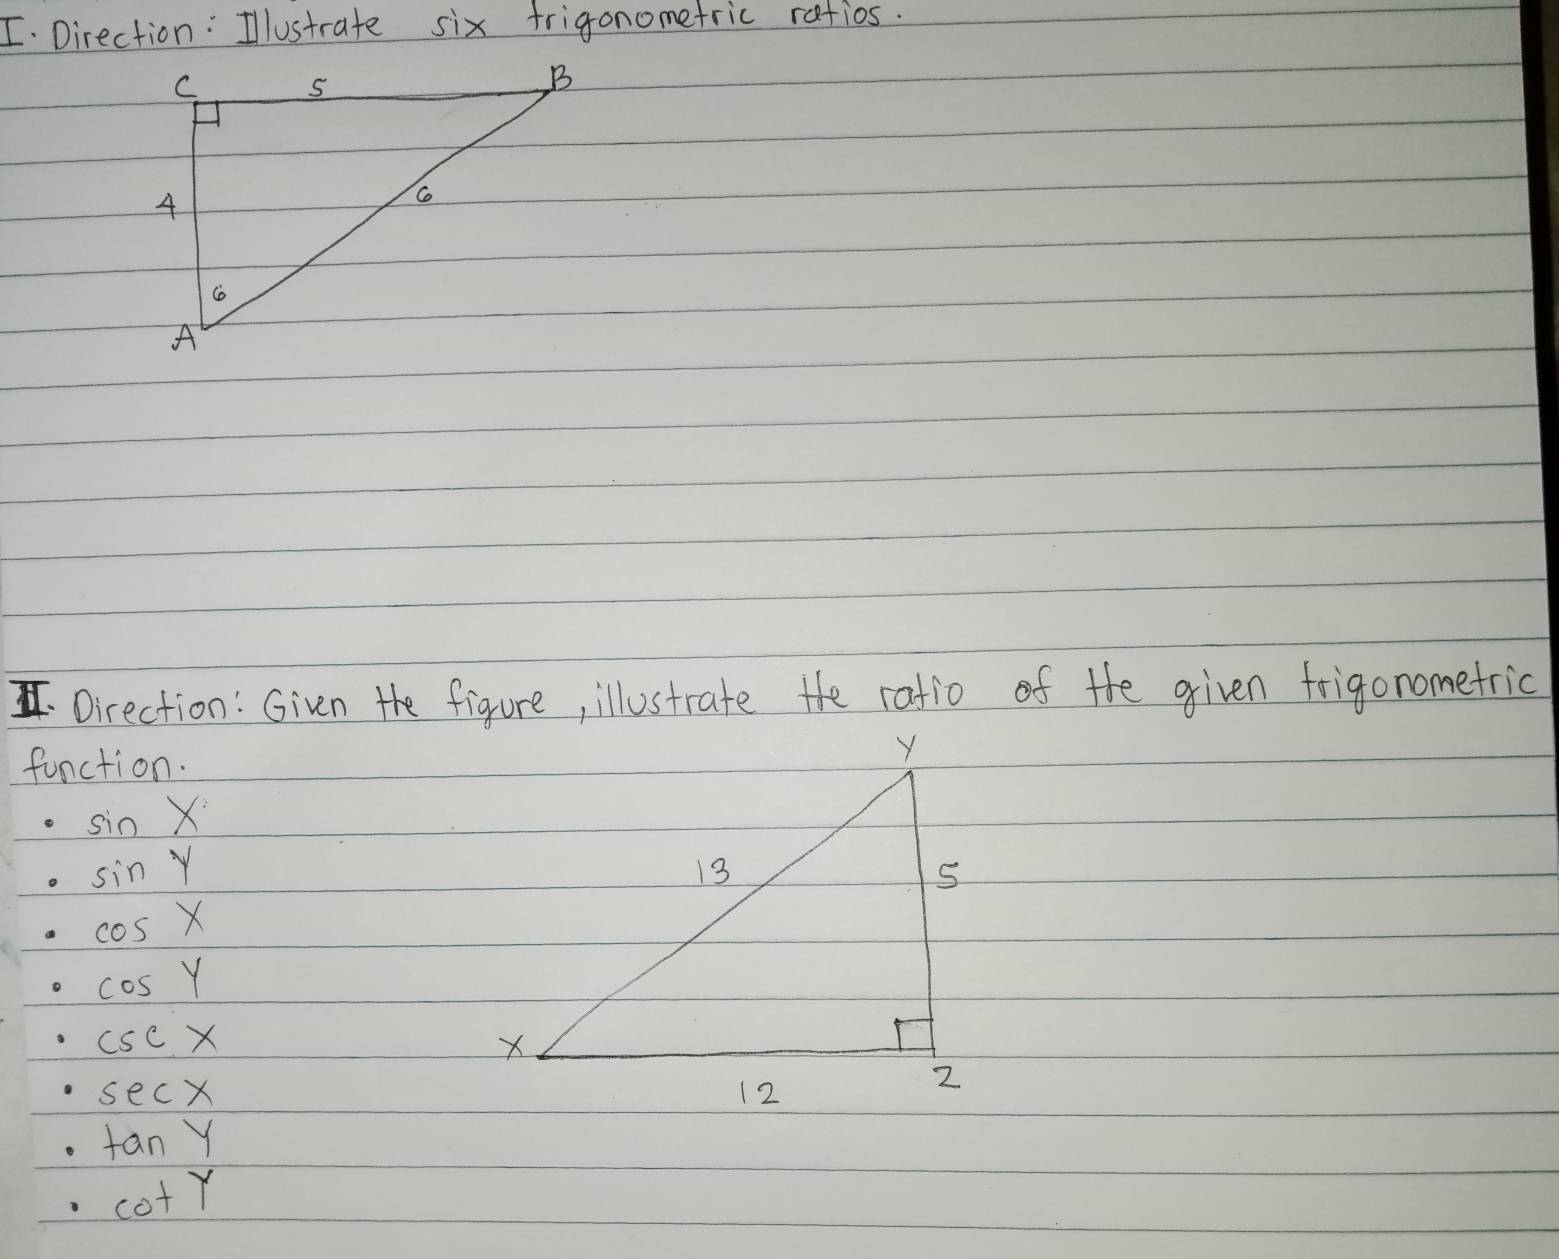 I. Direction: Illustrate six trigonometric ratios.
C 5 B
4 6
6
A
II. Direction: Given the figure, illustrate the ratio of the given trigonometric
function.
Y
• sin X
• sin Y
13 5
• cos X
• cos Y
• csc X
X
Z
• sec X
12
• tan Y
• cot Y